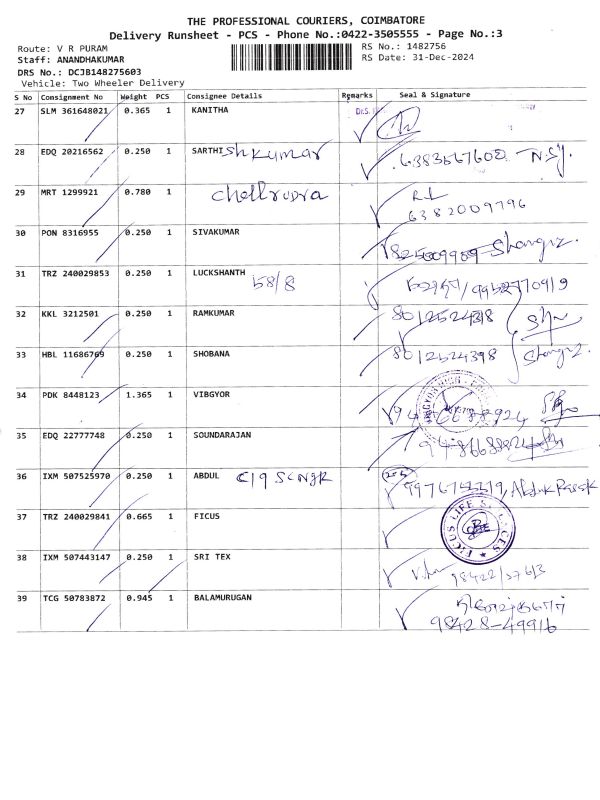 THE PROFESSIONAL COURIERS, COIMBATORE
Delivery Runsheet - PCS - Phone No.:0422-3505555 - Page No.:3
Route: V R PURAM
RS No.: 1482756
Staff: ANANDHAKUMAR
RS Date: 31-Dec-2024
DRS No.: DCJB148275603
Vehicle: Two Wheeler Delivery
S No Consignment No Weight PCS Consignee Details Remarks Seal & Signature
27 SLM 361648021 0.365 1 KANITHA
28 EDQ 20216562 0.250 1 SARTHI Shkumar
29 MRT 1299921 0.780 1
6382009796
30 PON 8316955 0.250 1 SIVAKUMAR
31 TRZ 240029853 0.250 1 LUCKSHANTH 58/8
32 KKL 3212501 0.250 1 RAMKUMAR
33 HBL 11686769 0.250 1 SHOBANA 8012524398
34 PDK 8448123 1.365 1 VIBGYOR
35 EDQ 22777748 0.250 1 SOUNDARAJAN
36 IXM 507525970 0.250 1 ABDUL
37 TRZ 240029841 0.665 1 FICUS FICUS LIFE
38 IXM 507443147 0.250 1 SRI TEX
39 TCG 50783872 0.945 1 BALAMURUGAN
98428-49916